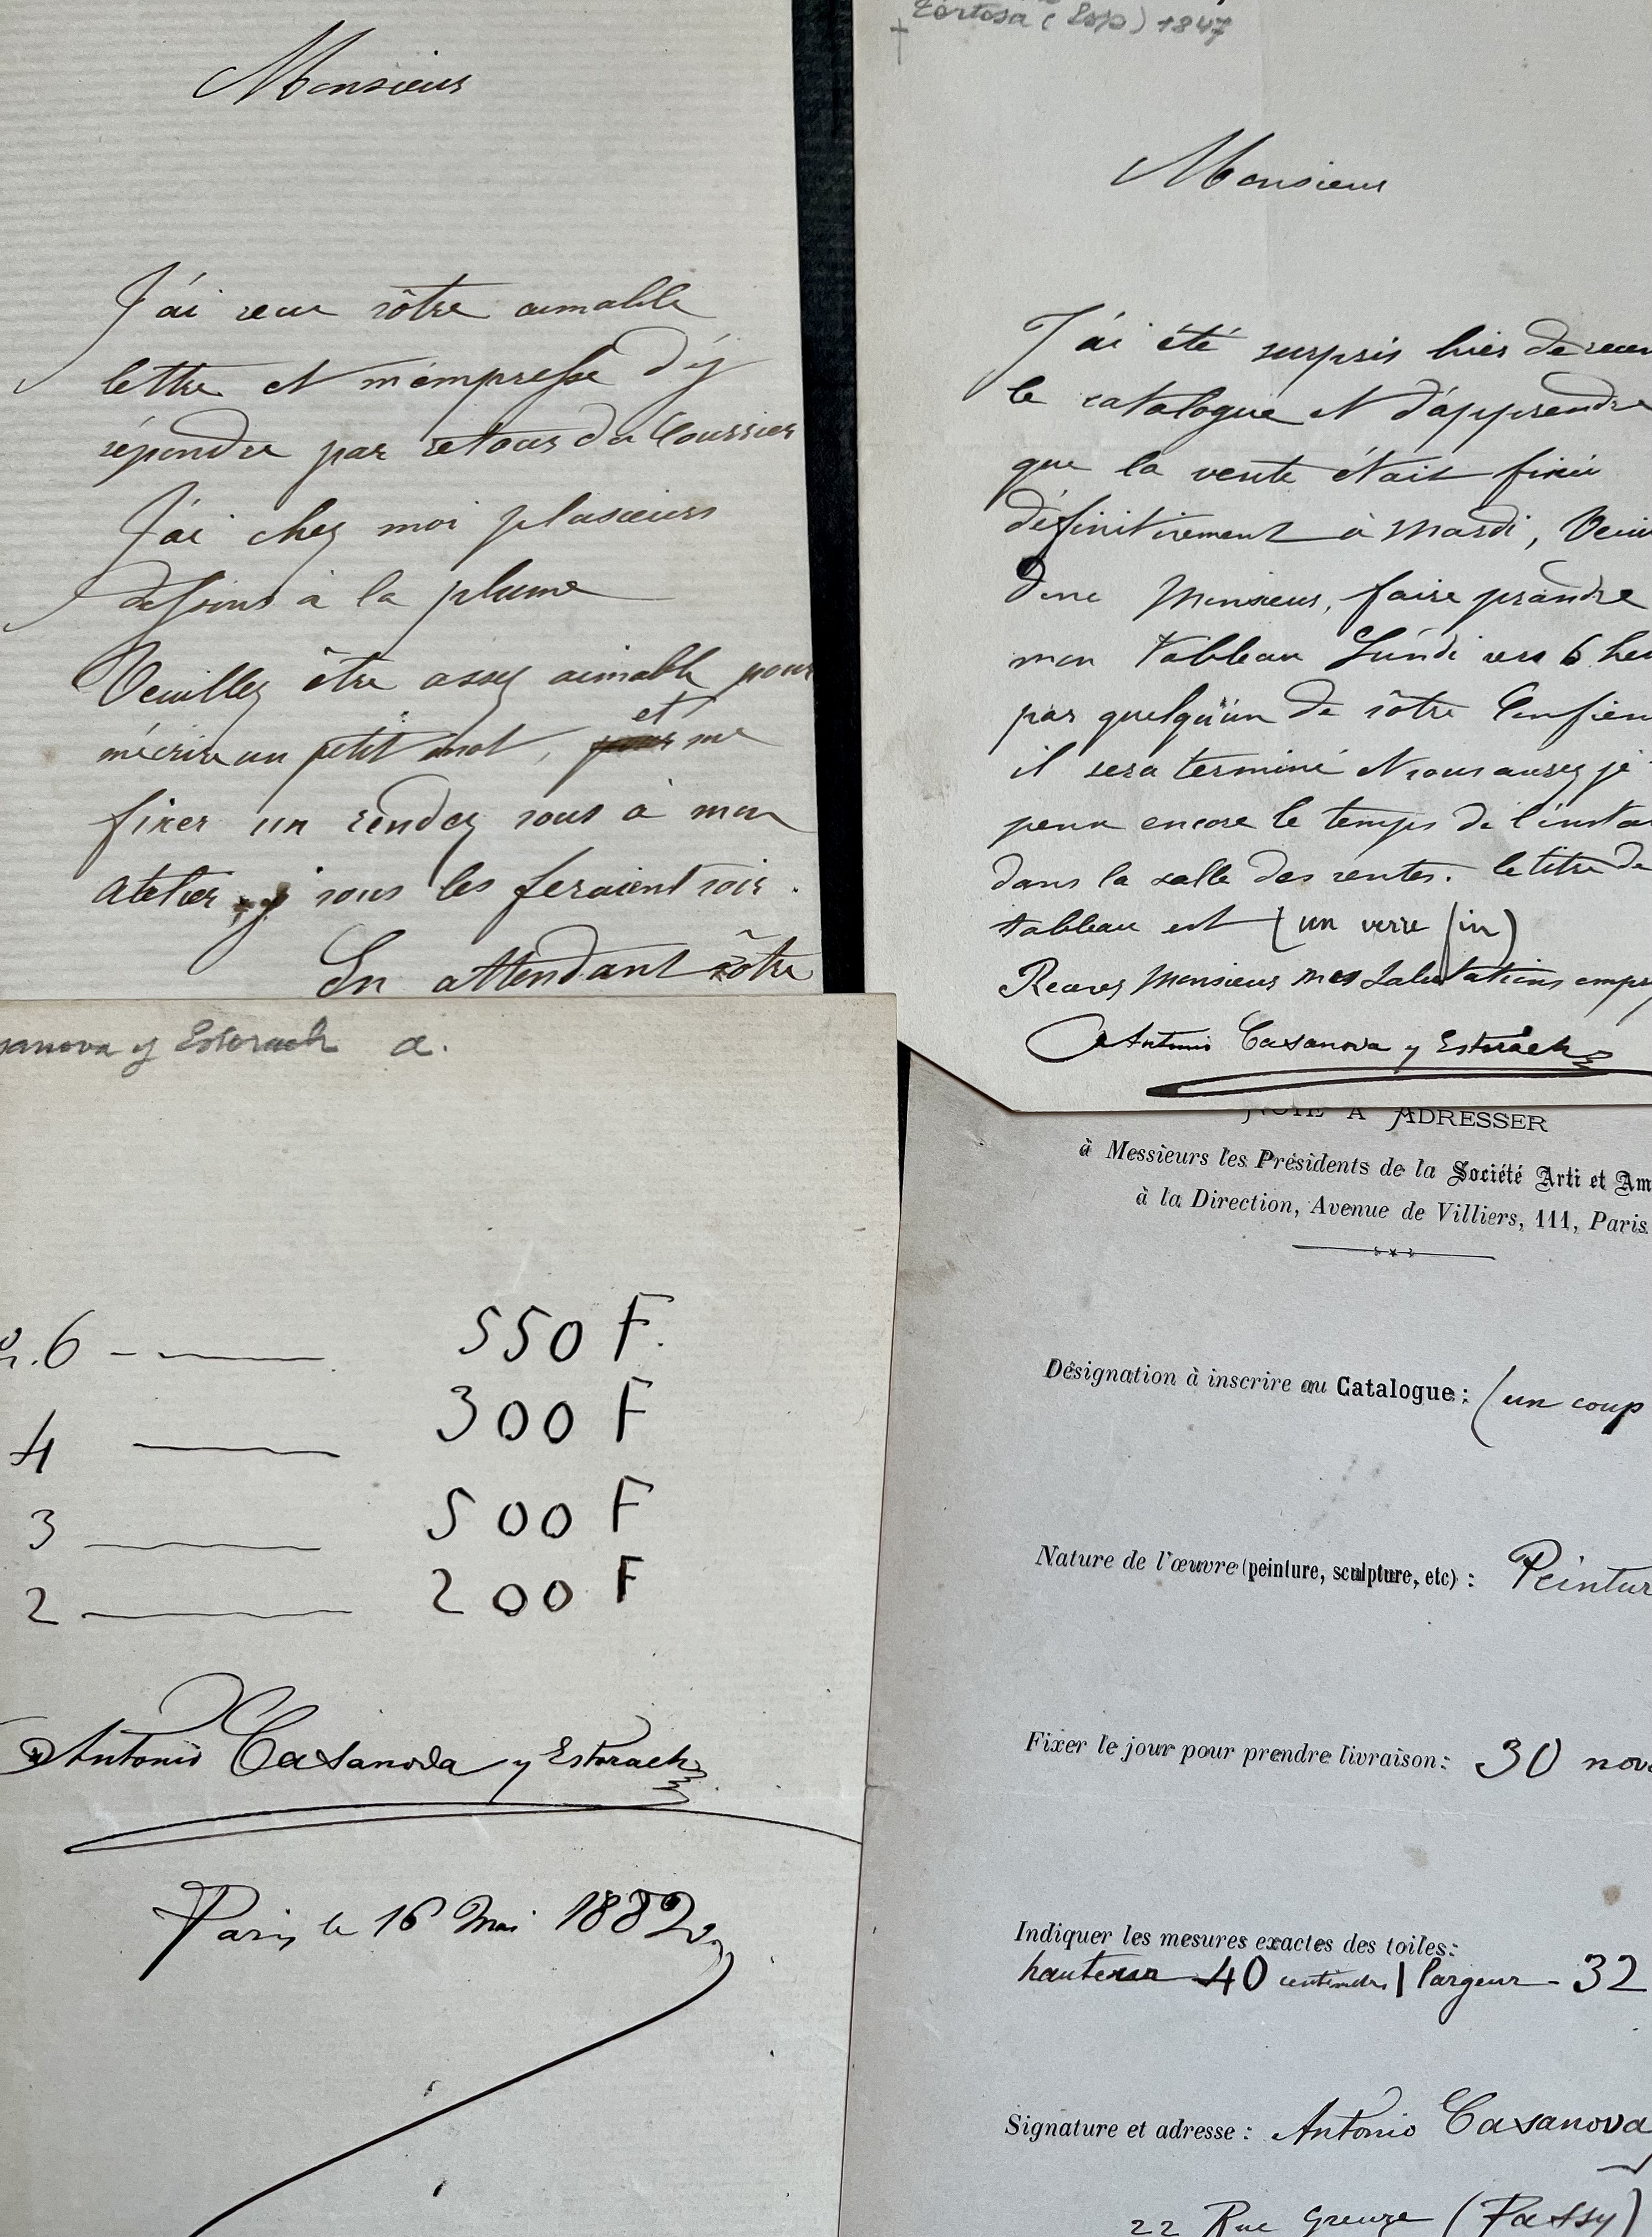 Monsieur
J'ai recu vôtre aimable
lettre et m'empresse d'y
répondre par retour du Courrier
J'ai chez moi plusieurs
dessins à la plume
Veuillez être assez aimable pour
m'écrire un petit mot, et me
fixer un rendez vous à mon
atelier, j vous les feraient voir.
En attendant vôtre
Tortosa (Esp) 1847
Monsieur
J'ai été surpris hier de
le catalogue et d'apprendre
que la vente était fixée
définitivement à Mardi,
donc Monsieur, faire prandre
mon Tableau Lúndi vers 6
par quelqu'ún de vôtre
il sera terminé et vous aurez je
peux encore le temps de
dans la salle des ventes. le titre de
tableau est (un verre fin)
Recevez Monsieur mes Salutations
Antonio Casanova y Estorach
anova y Estorach a.
n.º 6 - —— 550 F.
4 —— 300 F
3 —— 500 F
2 —— 200 F
Antonio Casanova y Estorach
Paris le 16 Mai 1882
NOTE A ADRESSER
à Messieurs les Présidents de la Société Arti et Am
à la Direction, Avenue de Villiers, 111, Paris.
Désignation à inscrire au Catalogue : (un coup
Nature de l'œuvre (peinture, sculpture, etc) : Peintur
Fixer le jour pour prendre livraison : 30 nov
Indiquer les mesures exactes des toiles :
hauteur 40 | largeur - 32
Signature et adresse : Antonio Casanova
22 Rue Greuze (Passy)